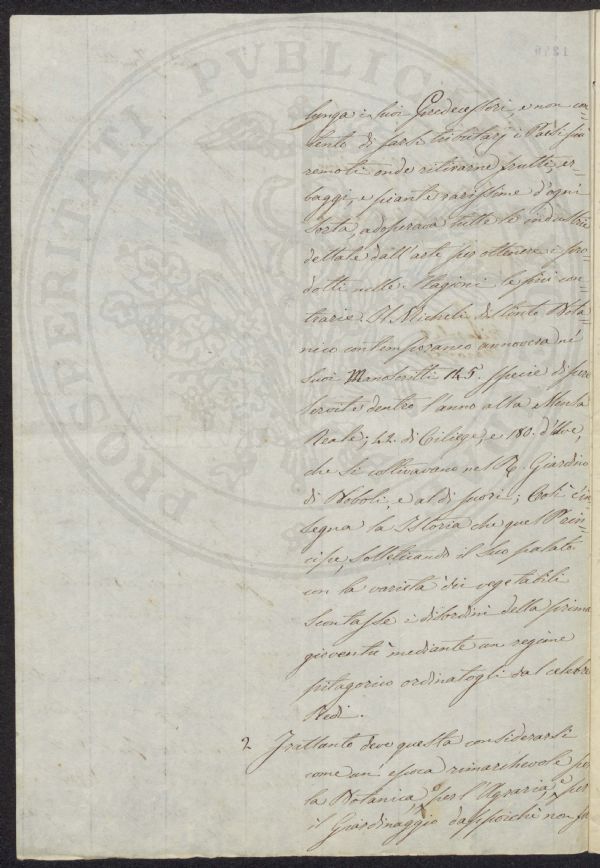 lunga i suoi Predecessori, e non con=
tento di farsi tributarj i Paesi più
remoti onde ritirarne frutti, er=
baggi, e piante rarissime d'ogni
sorta, adoperava tutte le industrie
dettate dall'arte per ottenere i pro=
dotti nelle stagioni le più con=
trarie. Il Micheli distinto Bota=
nico contemporaneo annovera ne'
suoi Manoscritti 145. specie di pere
servite dentro l'anno alla Mensa
Reale, 42. di Ciliege, e 180. d'Uve,
che si coltivavano nel R. Giardino
di Boboli, e al di fuori; Così c'in=
segna la Istoria che quel Prin=
cipe, solleticando il suo palato
con la varietà dei vegetabili
scontasse i disordini della prima
gioventù mediante un regime
pitagorico ordinatogli dal celebre
Redi.
2 Frattanto deve questa considerarsi
come un epoca rimarchevole per
la Botanica, e per l'Agraria, e per
il Giardinaggio dappoichè non fu
PROSPERITATI PUBLICAE